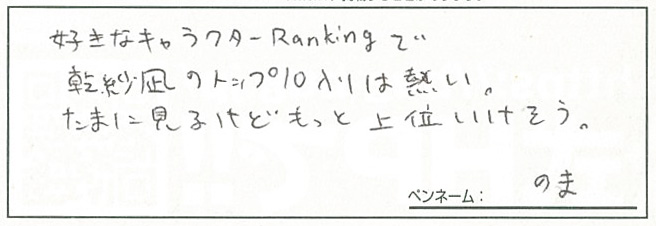 好きなキャラクターRankingで
乾紗凪のトップ10入りは熱い。
たまに見るけどもっと上位いけそう。
ペンネーム： のま